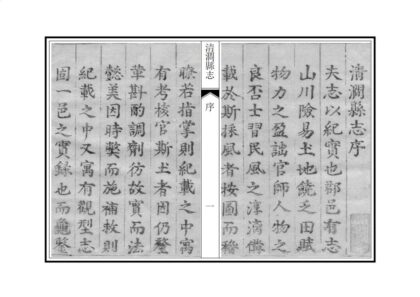 清澗縣志序
夫志以紀實也郡邑有志
山川險易土地饒乏田賦
物力之盈詘官師人物之
良否士習民風之淳漓備
載於斯採風者按圖而稽
清澗縣志
序
一
瞭若指掌則紀載之中寓
有考核官斯土者因仍整
葺斟酌調劑仿故實而法
懿美因時弊而施補救則
紀載之中又寓有觀型志
固一邑之實錄也而龜鑒